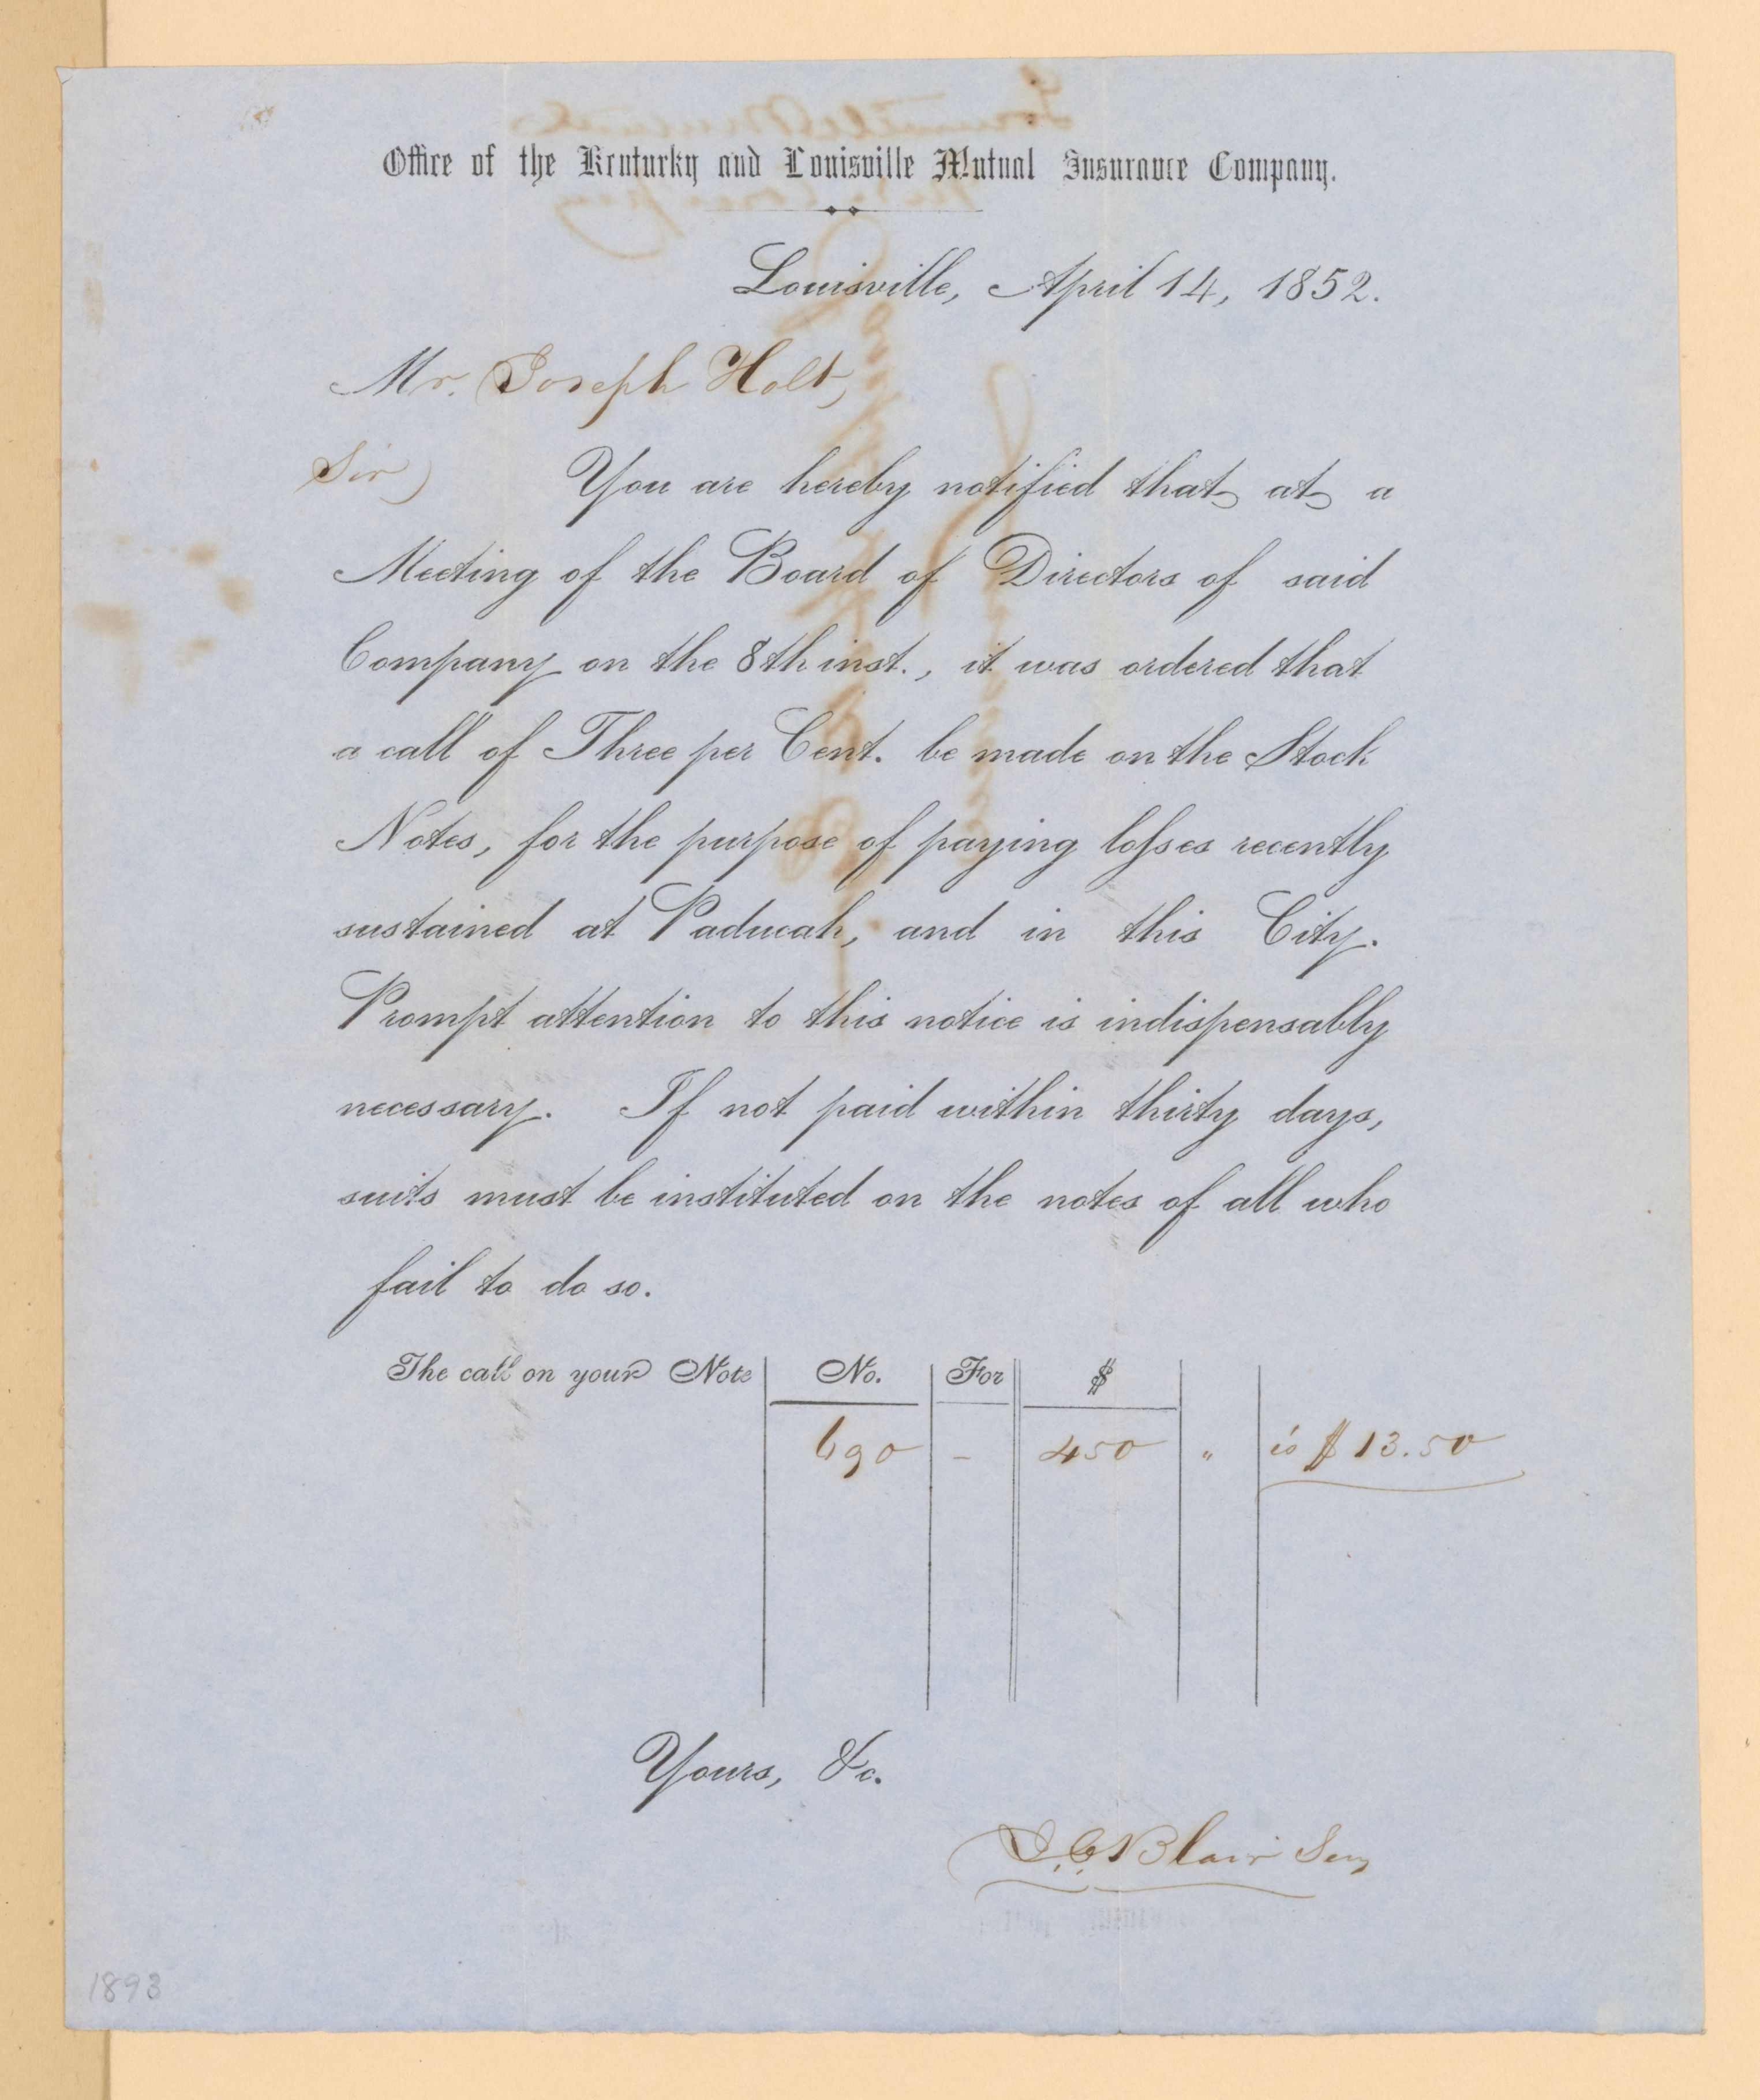 Office of the Kentucky and Louisville Mutual Insurance Company.
Louisville, April 14, 1852.
Mr. Joseph Holt,
Sir) You are hereby notified that at a
Meeting of the Board of Directors of said
Company on the 8th inst., it was ordered that
a call of Three per Cent. be made on the Stock
Notes, for the purpose of paying losses recently
sustained at Paducah, and in this City.
Prompt attention to this notice is indispensably
necessary. If not paid within thirty days,
suits must be instituted on the notes of all who
fail to do so.
The call on your Note No. For $
690 - 450 " is $ 13.50
Yours, &c.
Blair Secy
1893